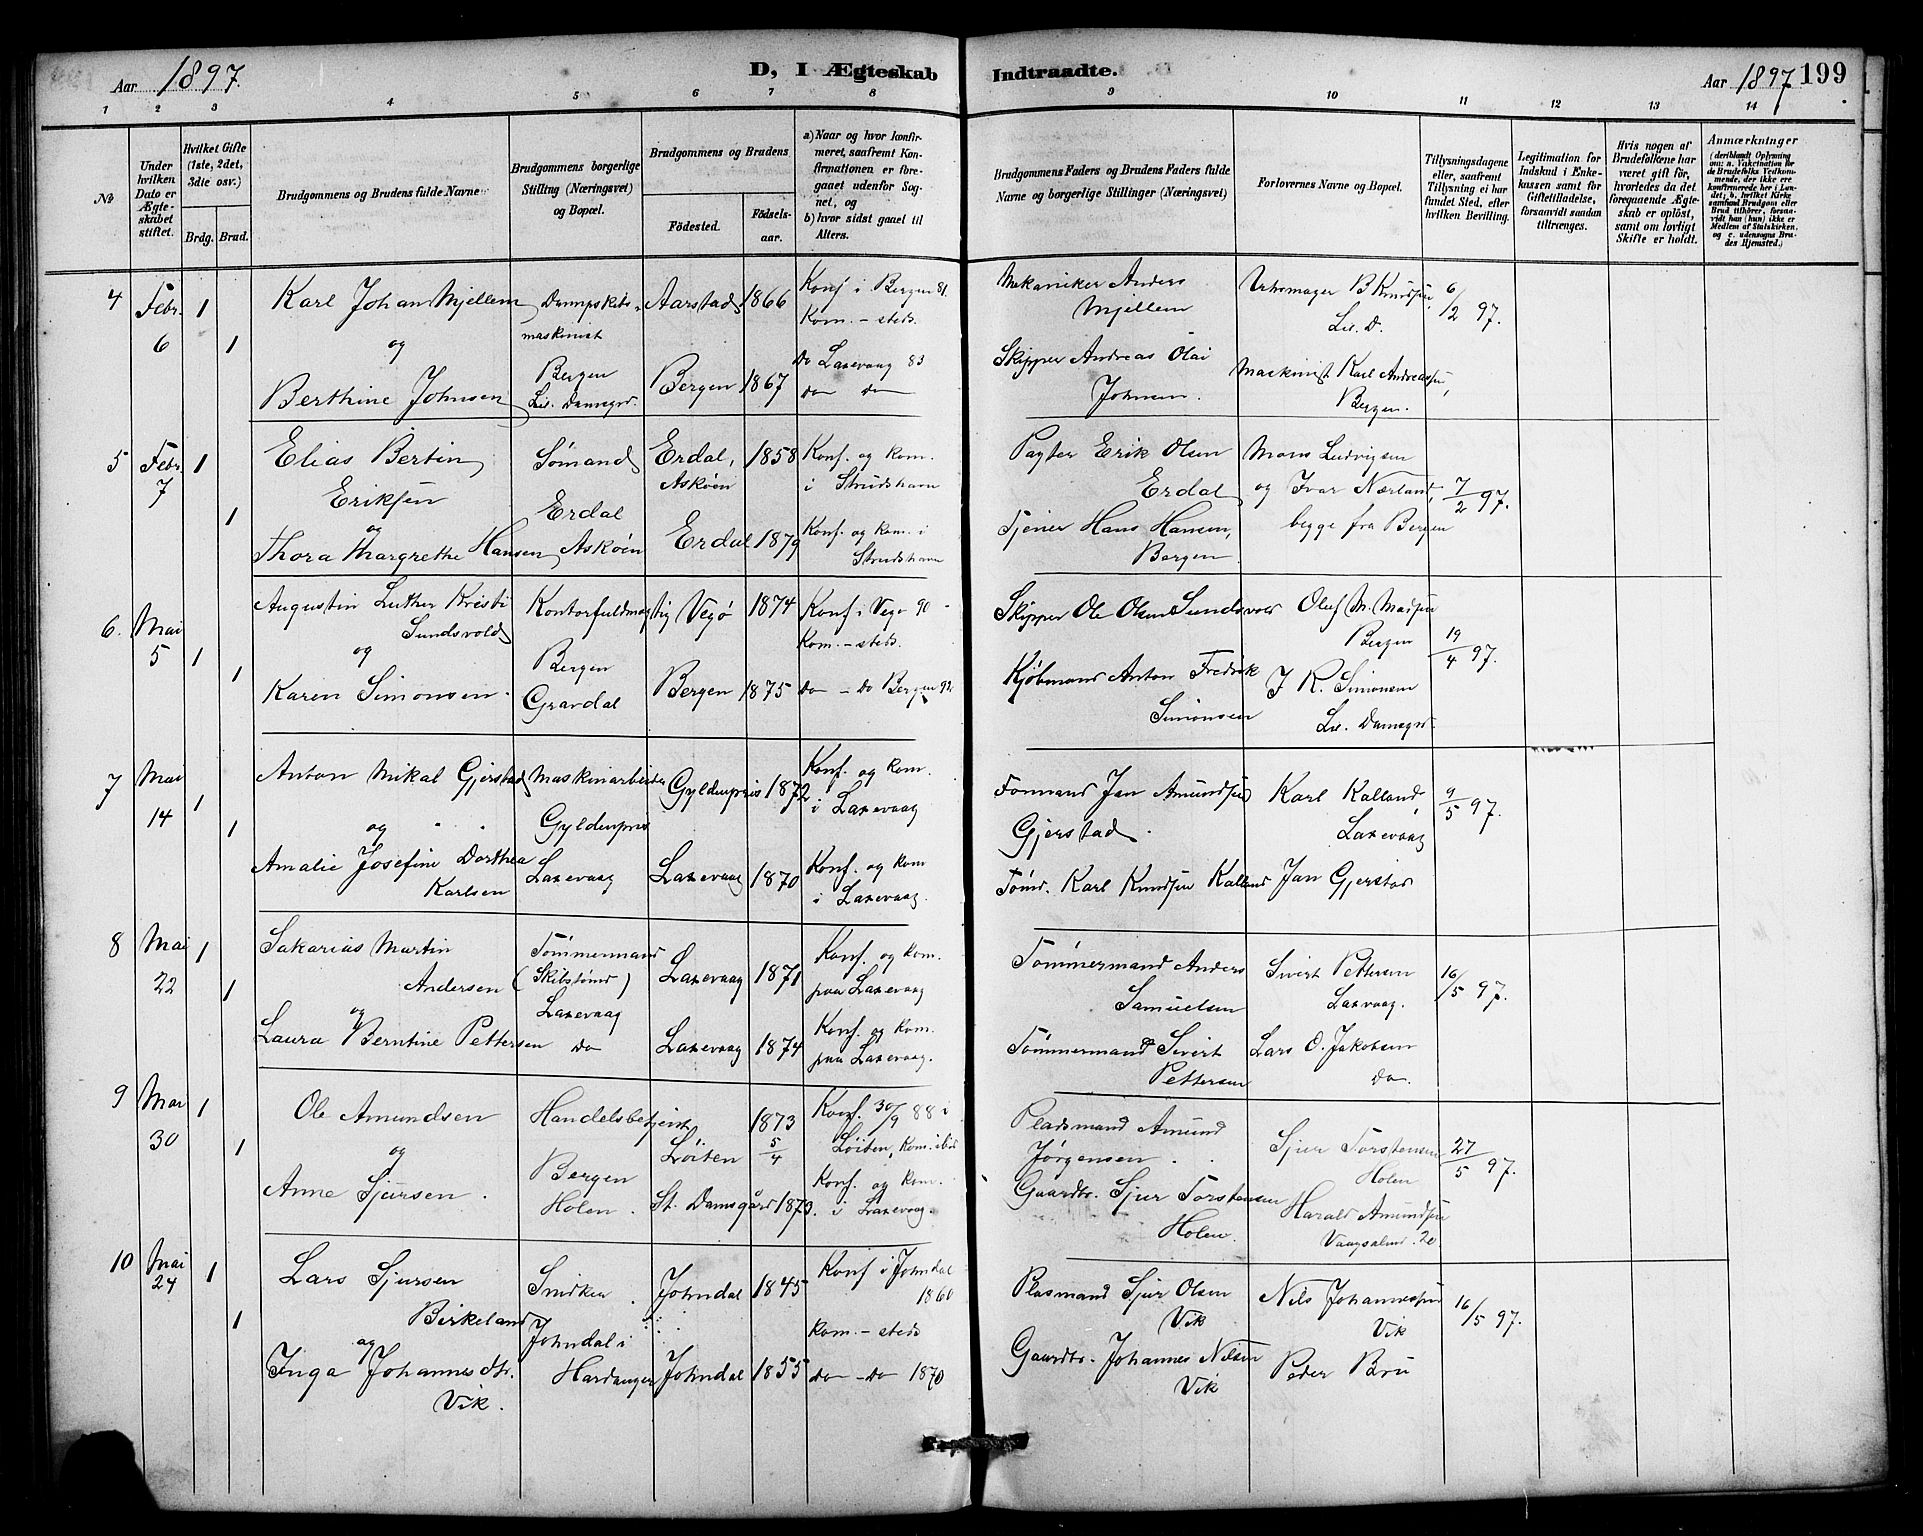 Aar 1897.
D, I Ægteskab
Indtraadte.
Aar 1897 199
1 2 3 4 5 6 7 8 9 10 11 12 13 14
№
Under hvilken Dato er Ægteskabet stiftet.
Hvilket Gifte (1ste, 2det, 3die osv.)
Brdg. Brud.
Brudgommens og Brudens fulde Navne
Brudgommens borgerlige Stilling (Næringsvei) og Bopæl.
Brudgommens og Brudens
Födested.
Födselsaar.
a) Naar og hvor konfirmeret, saafremt Konfirmationen er foregaaet udenfor Sognet, og
b) hvor sidst gaaet til Alters.
Brudgommens Faders og Brudens Faders fulde Navne og borgerlige Stillinger (Næringsvei)
Forlovernes Navne og Bopæl.
Tillysningsdagene eller, saafremt Tillysning ei har fundet Sted, efter hvilken Bevilling.
Legitimation for Indskud i Enkekassen samt for Giftetilladelse, forsaavidt saadan tiltrænges.
Hvis nogen af Brudefolkene har været gift før, hvorledes da det foregaaende Ægteskab er oplöst, samt om lovligt Skifte er holdt.
Anmærkninger
(deriblandt Oplysning om: a. Vakcination for de Brudefolks Vedkommende, der ikke ere konfirmerede her i Landet; b. hvilket Kirkesamfund Brudgom eller Brud tilhörer, forsaavidt han (hun) ikke er Medlem af Statskirken. og c. udensogns Brudes Hjemsted.)
4 Febr. 6 1 1
Karl Johan Mjellem
og
Berthine Johnsen
Dampskibsmaskinist
Bergen
Lil. Damsgrd.
Aarstad 1866
Bergen 1867
Konf i Bergen 81.
Kom. - steds.
Do Laxevaag 83
do do
Mekaniker Anders
Mjellem
Skipper Andreas Olai
Johnsen.
Urhsmager B Knudsen
Lil. D.
Maskinist Karl Andreassen,
Bergen.
6/2 97.
5 Febr. 7 1 1
Elias Bertin
Eriksen
og
Thora Margrethe Hansen
Sømand
Erdal
Askøen
Erdal, Askøen 1858
Erdal 1879
Konf. og kom.
i Strudshavn
Konf. og kom. i
Strudshavn
Pagter Erik Olsen
Erdal
Tjener Hans Hansen,
Bergen
Mons Ludvigsen
og Ivar Nærland,
begge fra Bergen
7/2 97.
6. Mai 5 1 1
Augustin Luther Kristi
Sundsvold
og
Karen Simonsen.
Kontorfuldmægtig
Bergen
Gravdal
Vegø 1874
Bergen 1875
Konf. i Vegø 90
Kom. - steds.
do - do Bergen 92
Skipper Ole Olsen Sundsvold
Kjøbmand Anton Fredrik
Simonsen
Oluf M. Madsen
Bergen
J R. Simonsen
Lil. Damsgrd.
19/4 97.
7 Mai 14 1 1
Anton Mikal Gjerstad
og
Amalie Josefine Dorthea
Karlsen
Maskinarbeider
Gyldenpris
Laxevaag
Gyldenpris 1872
Laxevaag 1870
Konf. og kom.
i Laxevaag
Konf. og kom
i Laxevaag.
Formand Jan Amundsen
Gjerstad.
Tømd. Karl Knudsen Kalland
Karl Kalland,
Laxevaag
Jan Gjerstad
9/5 97.
8 Mai 22 1 1
Sakarias Martin
Andersen
og
Laura Berntine Pettersen
Tømmermand
(Skibstømd)
Laxevaag
do
Laxevaag 1871
Laxevaag 1874
Konf. og kom.
paa Laxevaag
Konf. og kom.
paa Laxevaag.
Tømmermand Anders
Samuelsen
Tømmermand Sivert
Pettersen
Sivert Pettersen
Laxvaag.
Lars O. Jakobsen
do.
16/5 97.
9 Mai 30 1 1
Ole Amundsen
og
Anne Sjursen.
Handelsbetjent
Bergen
Holen.
Löiten 1873 5/4
St. Damsgård 1873.
Konf. 30/9 88 i
Löiten, kom. ibid
Konf. og kom.
i Laxevaag.
Pladsmand Amund
Jørgensen.
Gaardbr. Sjur Torstensen
Holen.
Sjur Torstensen
Holen
Harald Amundsen
Vaagsalmd. 20.
27/5 97.
10 Mai 24 1 1
Lars Sjursen
Birkeland
og
Inga Johannesdtr.
Vik.
Snidker.
Johndal i
Hardanger
Johndal 1845
Johndal 1855
Konf i Johndal
1860
Kom. - steds
do - do 1870
Plasmand Sjur Olsen
Vik
Gaardbr. Johannes Nilsen
Vik
Nils Johannesen
Vik
Peder Bru
16/5 97.